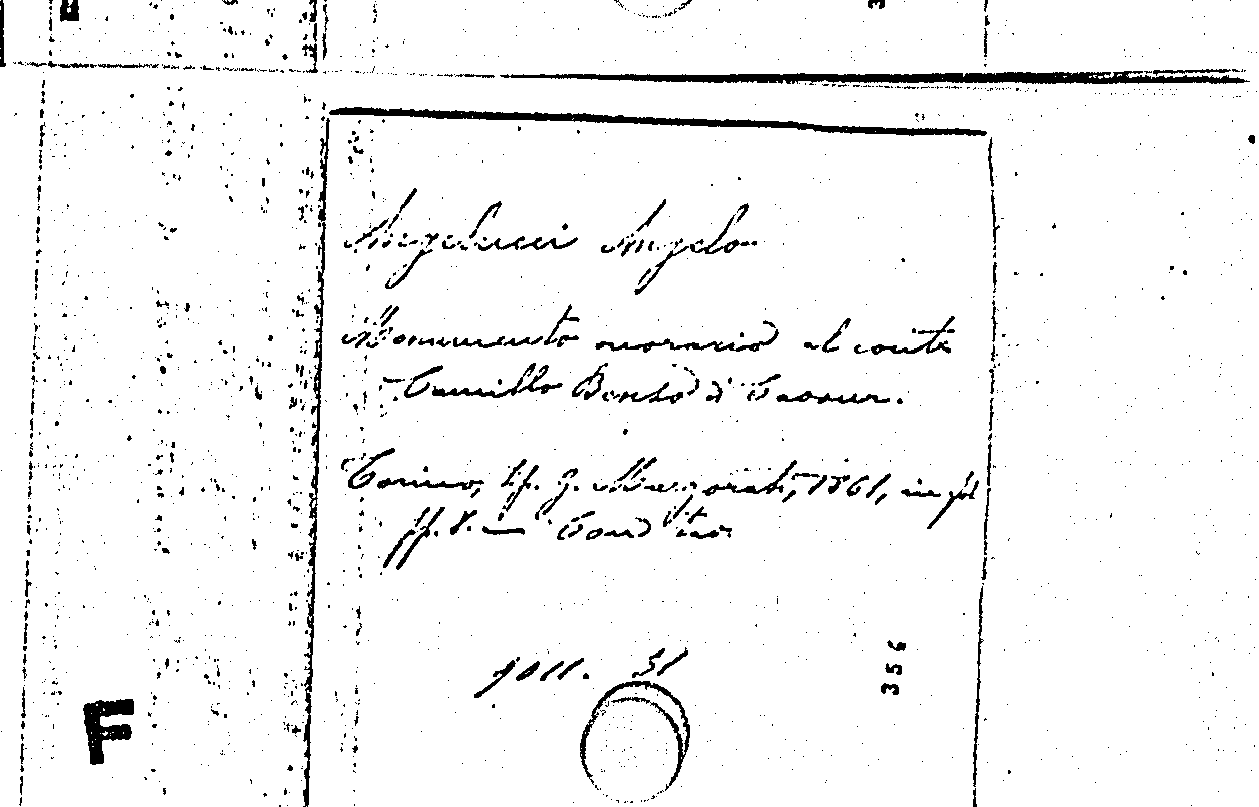 Angelucci Angelo
Monumento onorario al conte
Camillo Benso di Cavour.
Torino, tip. G. Marzorati, 1861, in fol
pp. 8. — Cond tav.
1011. 51
356
F